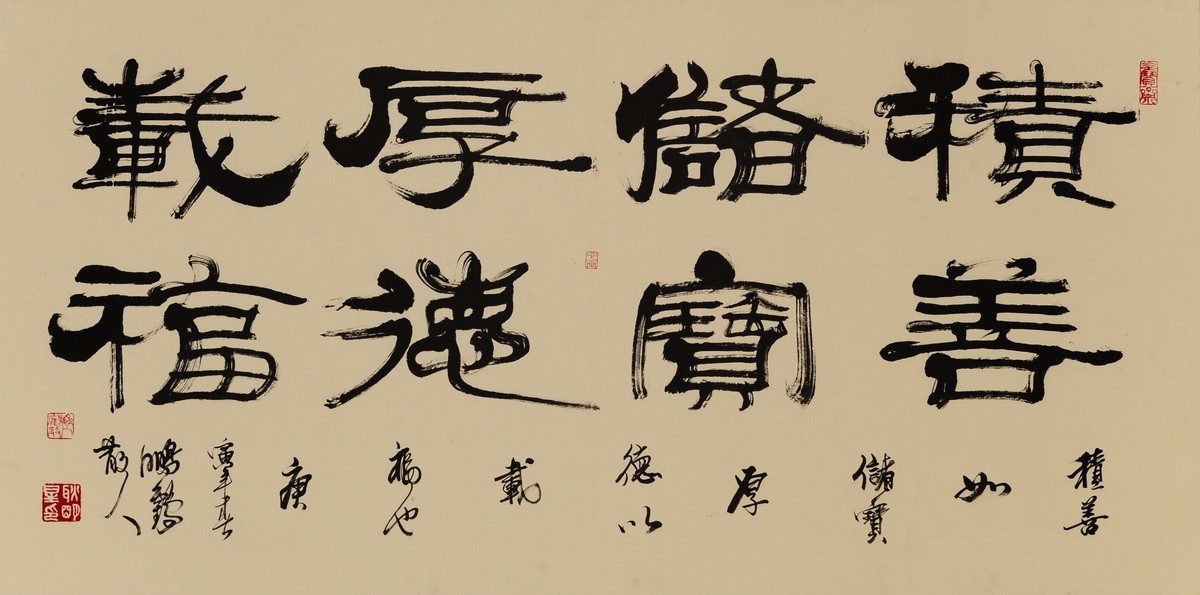 積善
儲寶
厚德
載福
積善
如
儲寶
厚
德以
載
福也
庚
寅年春
鵬鶴
散人
耿明
星印